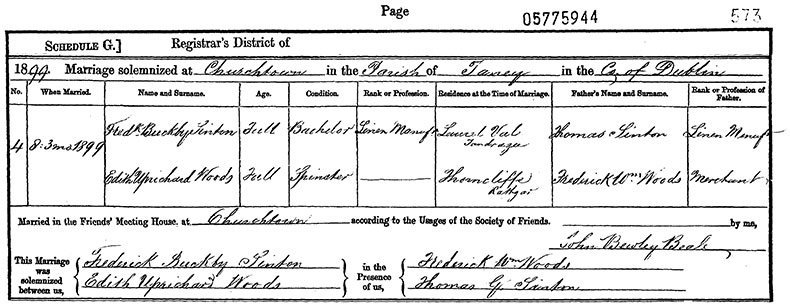 Page 05775944 573
SCHEDULE G.] Registrar's District of
1899. Marriage solemnized at Churchtown in the Parish of Taney in the Co. of Dublin
No. When Married. Name and Surname. Age. Condition. Rank or Profession. Residence at the Time of Marriage. Father's Name and Surname. Rank or Profession of Father.
4 8.3mo 1899 Fredk Buckby Sinton Full Bachelor Linen Manufr Laurel Vale Tandragee Thomas Sinton Linen Manufr
Edith Uprichard Woods Full Spinster Thorncliffe Rathgar Frederick Wm Woods Merchant
Married in the Friends' Meeting House, at Churchtown according to the Usages of the Society of Friends. by me,
John Bewley Beale
This Marriage was solemnized between us,
Frederick Buckby Sinton
Edith Uprichard Woods
in the Presence of us,
Frederick Wm Woods
Thomas G. Sinton